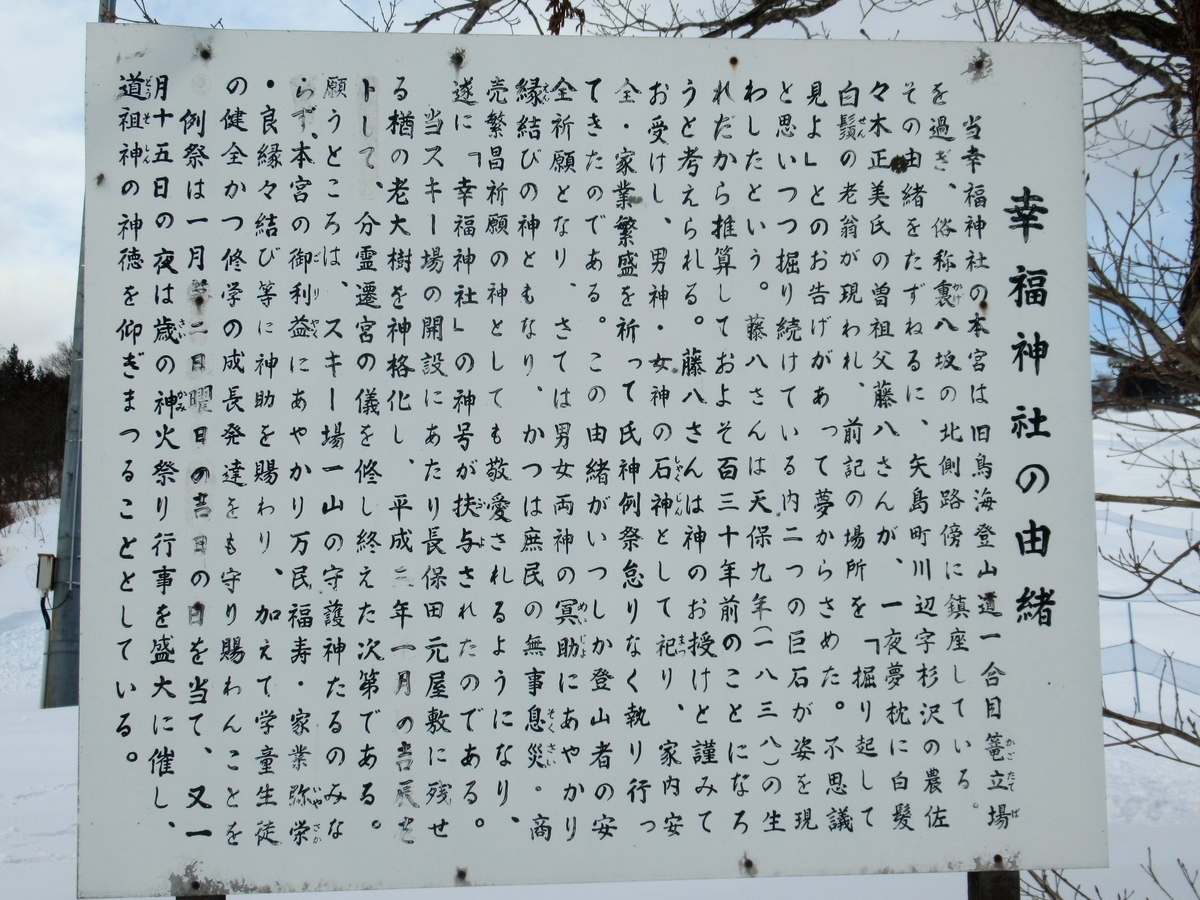 幸福神社の由緒
当幸福神社の本宮は旧鳥海登山道一合目篭立場
を過ぎ、俗称裏八坂の北側路傍に鎮座している。
その由緒をたずねるに、矢島町川辺字杉沢の農佐
々木正美氏の曽祖父藤八さんが、一夜夢枕に白髪
白鬚の老翁が現われ、前記の場所を「掘り起して
見よ」とのお告げがあって夢からさめた。不思議
と思いつつ掘り続けている内二つの巨石が姿を現
わしたという。藤八さんは天保九年(一八三八)の生
れだから推算しておよそ百三十年前のことになろ
うと考えられる。藤八さんは神のお授けと謹みて
お受けし、男神・女神の石神として祀り、家内安
全・家業繁盛を祈って氏神例祭怠りなく執り行っ
てきたのである。この由緒がいつしか登山者の安
全祈願となり、さては男女両神の冥助にあやかり
縁結びの神ともなり、かつは庶民の無事息災。商
売繁昌祈願の神としても敬愛されるようになり、
遂に「幸福神社」の神号が挟与されたのである。
当スキー場の開設にあたり長保田元屋敷に残せ
る楢の老大樹を神格化し、平成三年一月の吉辰を
卜して、分霊遷宮の儀を修し終えた次第である。
願うところは、スキー場一山の守護神たるのみな
らず、本宮の御利益にあやかり万民福寿・家業弥栄
・良縁々結び等に神助を賜わり、加えて学童生徒
の健全かつ修学の成長発達をも守り賜わんことを
例祭は一月第二日曜日の吉日の日を当て、又一
月十五日の夜は歳の神火祭り行事を盛大に催し、
道祖神の神徳を仰ぎまつることとしている。